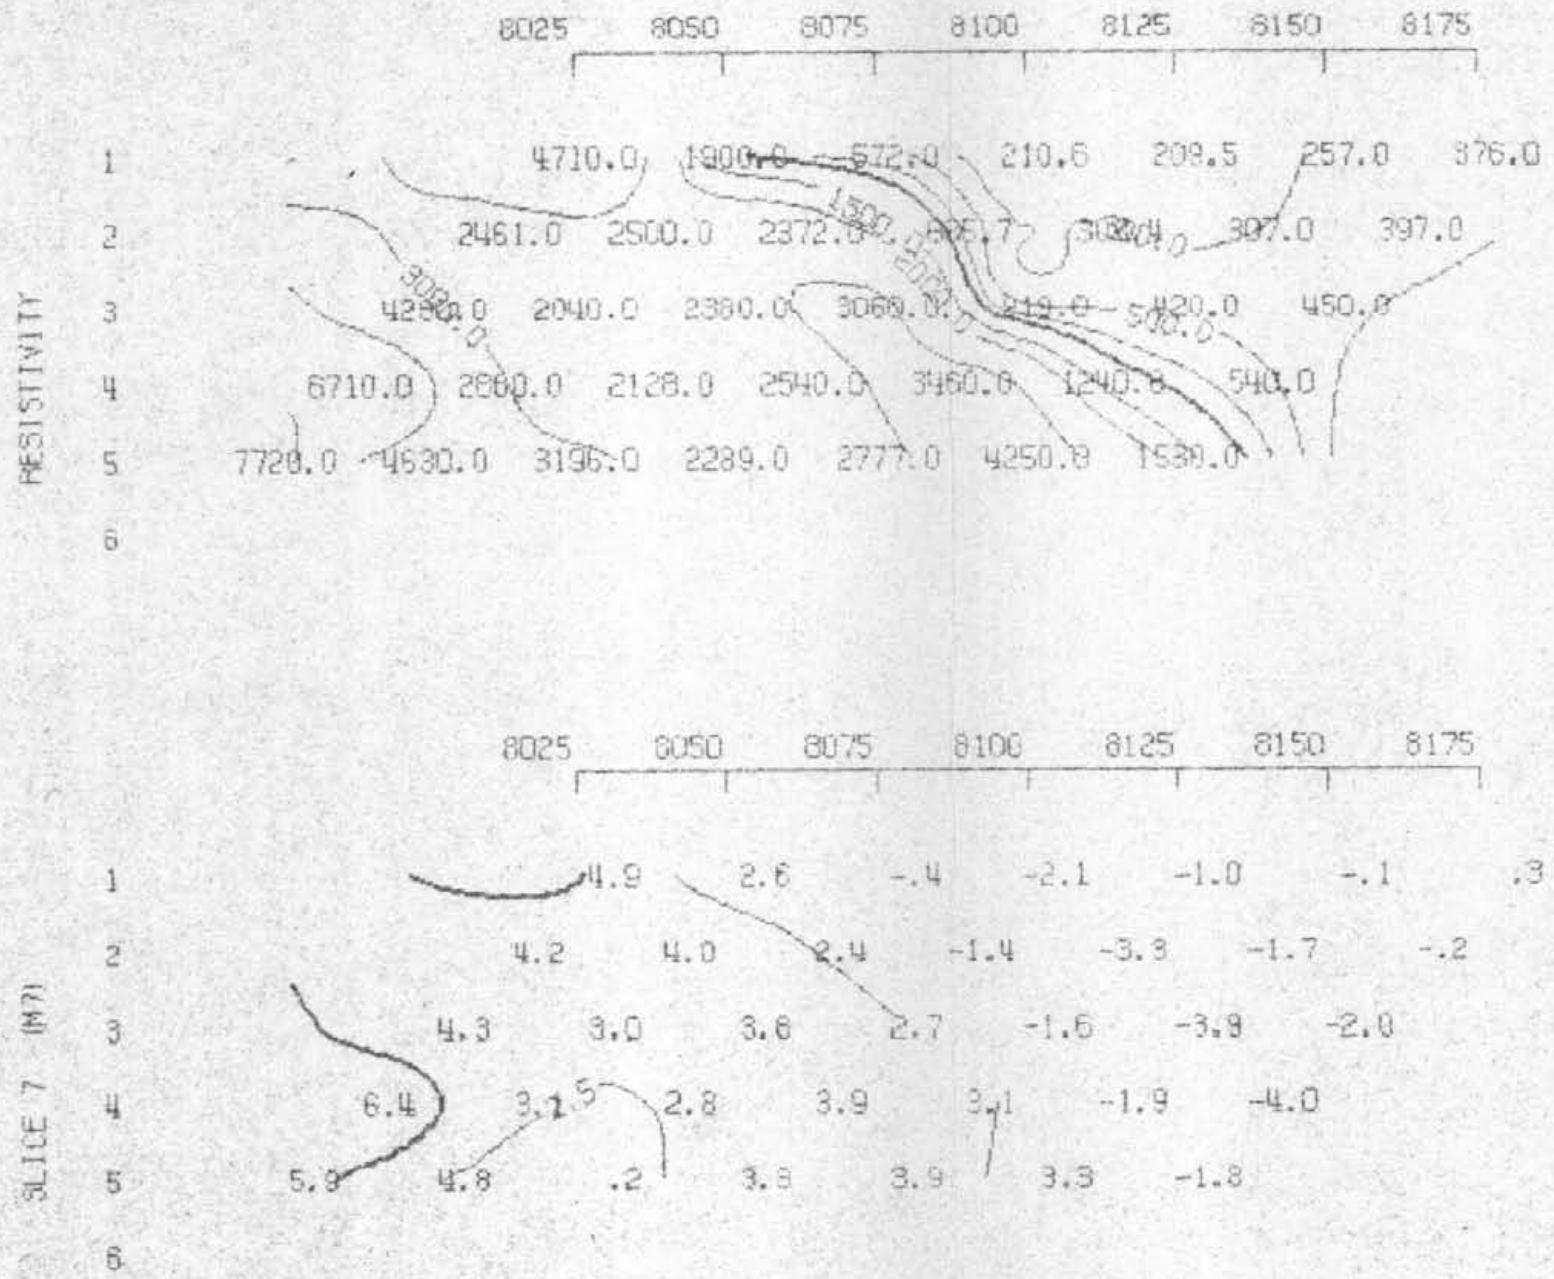 8025 8050 8075 8100 8125 8150 8175
RESISTIVITY
1 4710.0 1900.0 572.0 210.6 209.5 257.0 376.0
2 2461.0 2500.0 2372.0 1500.0 397.0 397.0
3 2040.0 2380.0 3060.0 219.0 500.0 420.0 450.0
3000.0
4 6710.0 2880.0 2128.0 2540.0 3460.0 1240.0 540.0
5 7720.0 4690.0 3196.0 2289.0 2777.0 4250.0 1530.0
6
8025 8050 8075 8100 8125 8150 8175
SLICE 7 (M7)
1 4.9 2.6 -.4 -2.1 -1.0 -.1 .3
2 4.2 4.0 2.4 -1.4 -3.3 -1.7 -.2
3 4.3 3.0 3.6 2.7 -1.6 -3.9 -2.0
4 6.4 2.8 3.9 3.1 -1.9 -4.0
5 5.9 4.8 .2 3.8 3.9 3.3 -1.8
6